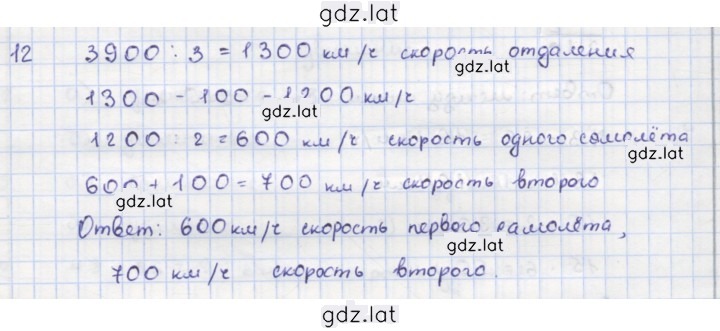 gdz.lat
12 3900 : 3 = 1300 км/ч скорость отдаления
gdz.lat
1300 - 100 - 1200 км/ч
gdz.lat
1200 : 2 = 600 км/ч скорость одного самолёта
gdz.lat
600 + 100 = 700 км/ч скорость второго
gdz.lat
Ответ: 600 км/ч скорость первого самолёта,
gdz.lat
700 км/ч скорость второго.
gdz.lat